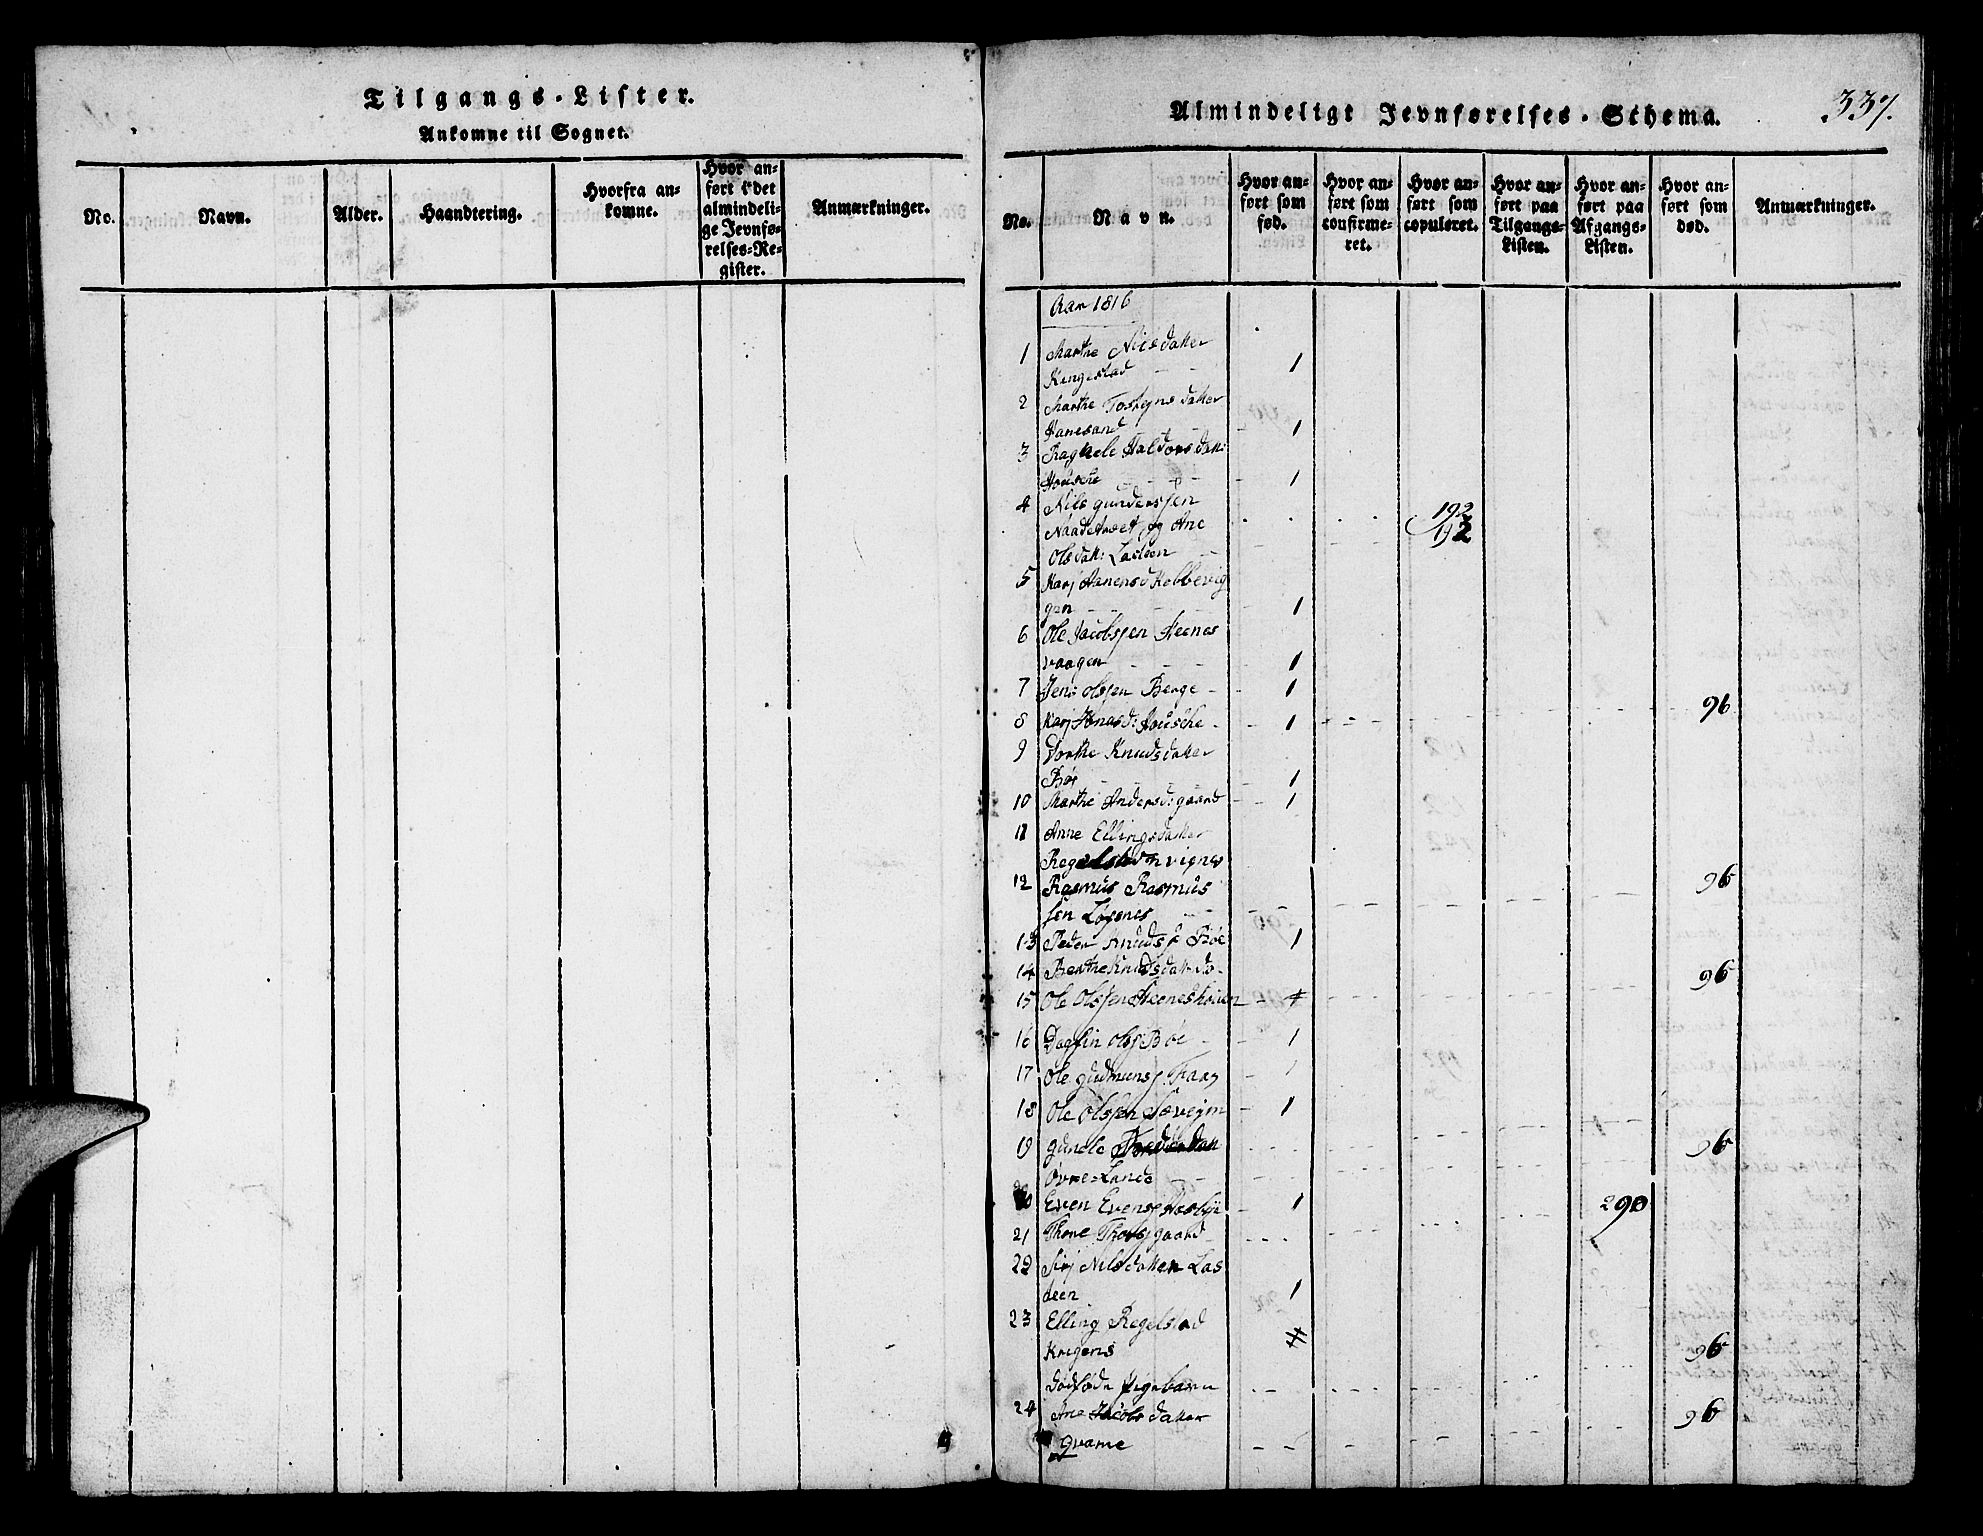 Tilgangs-Lister.
Ankomne til Sognet.
No.
Navn.
Alder.
Haandtering.
Hvorfra an-
komne.
Hvor an-
ført i det
almindeli-
ge Jevnfø-
relses-Re-
gister.
Anmærkninger.
Almindeligt Jevnførelses-Schema.
337.
No.
Navn.
Hvor an-
ført som
fød.
Hvor an-
ført som
confirme-
ret.
Hvor an-
ført som
copuleret.
Hvor an-
ført paa
Tilgangs-
Listen.
Hvor an-
ført paa
Afgangs-
Listen.
Hvor an-
ført som
død.
Anmærkninger.
Aar 1816
1 Marthe Nilsdatter
Kingestad - - 1
2 Marthe Tostejnsdatter
Hanesand - - 1
3 Ragnele Haldorsdatt:
Housche - - 1
4 Nils gunderssen
Naadetræet og Ane 192
Olsdatt: Lasteen 192
5 Karj Aanensd Hebbevig
gen - - 1
6 Ole Jacobsen Steenes
vaagen - - 1
7 Jens Olssen Berge - 1
8 Karj Jonasd: Housche - 1 96
9 Dorthe Knudsdatter
Bøe - - 1
10 Marthe Andersd: gaard - - 1
11 Anne Ellingsdatter
vignes
12 Rasmus Rasmus 96
sen Løgenes - -
13 Peder Knuds Bøe 1
14 Berthe Knudsdatt do - 96
15 Ole Olssen Steeneshoven
16 Dagfin Olss Bøe - - 1
17 Ole gudmuns Faaj - 1
18 Ole Olssen Sævejm - 1
19 gunele 96
Øvre-Lande
20 Even Evens 1 290
21 Thore Thors gaard
22 Sirj Nilsdatter Las
deen 1
23 Elling Regelstad
Krigens 96
Dødføde Pigebarn
24 Ane Jacobsdatter 96
Qvame